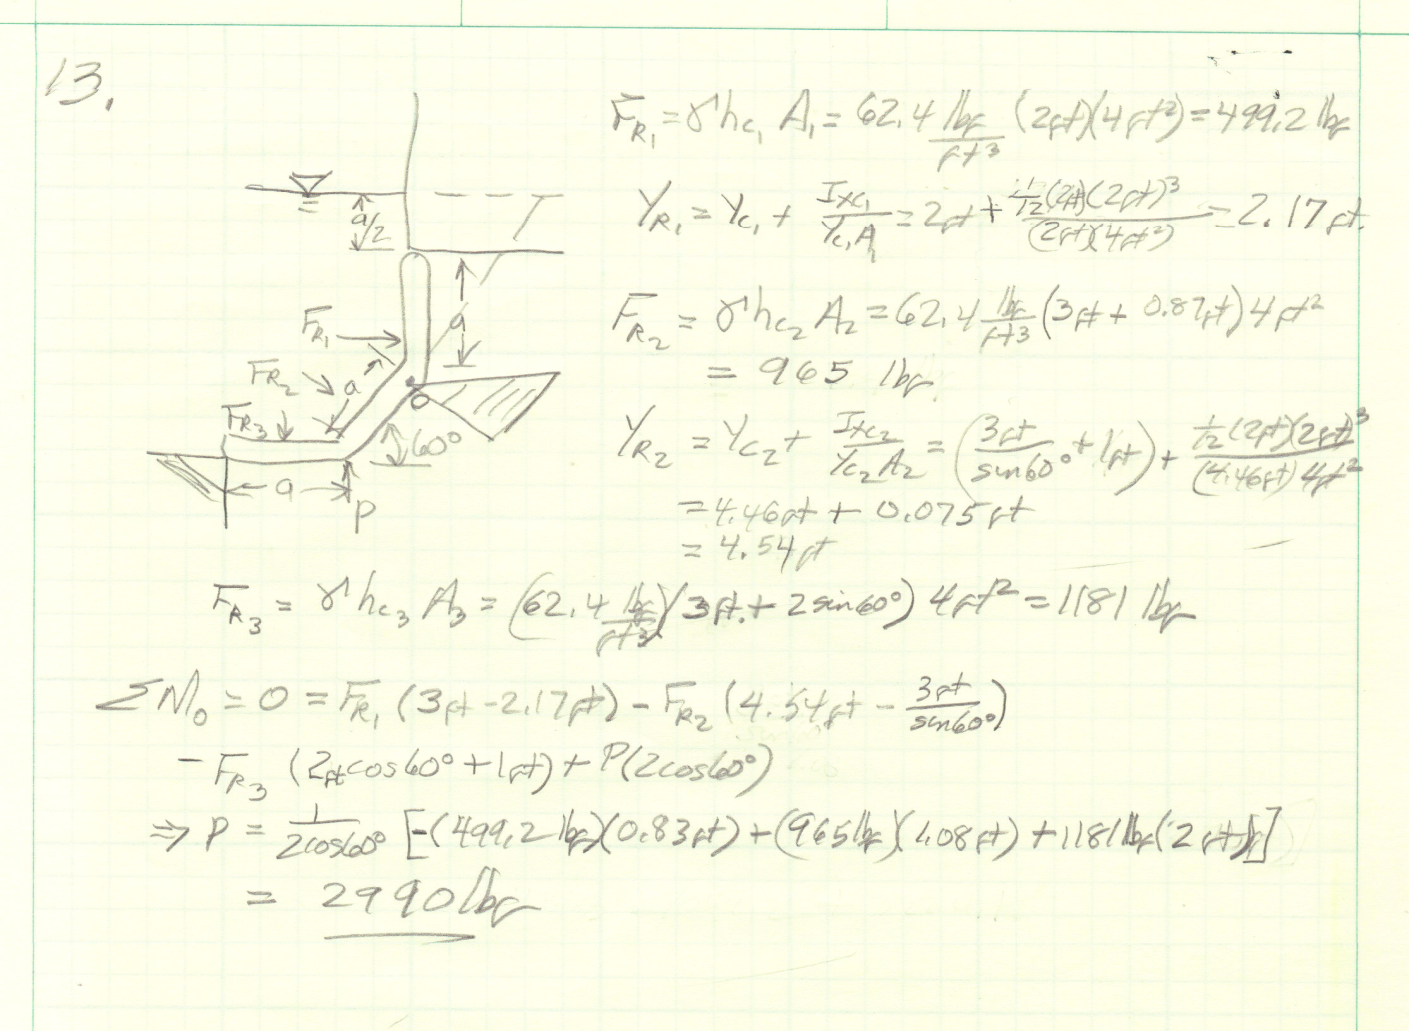 13.
F_R1 = γ h_c1 A_1 = 62.4 lbf/ft³ (2ft)(4ft²) = 499.2 lbf
Y_R1 = Y_c1 + I_xc1/(Y_c1 A_1) = 2ft + 1/12(2ft)(2ft)³/((2ft)(4ft²)) = 2.17ft.
a/2
a
F_R1
F_R2
a
F_R3
O
60°
a
P
F_R2 = γ h_c2 A_2 = 62.4 lbf/ft³ (3ft + 0.87ft) 4ft²
= 965 lbf
Y_R2 = Y_c2 + I_xc2/(Y_c2 A_2) = (3ft/sin60° + 1ft) + 1/12(2ft)(2ft)³/((4.46ft) 4ft²)
= 4.46ft + 0.075ft
= 4.54ft
F_R3 = γ h_c3 A_3 = (62.4 lbf/ft³)(3ft. + 2sin60°) 4ft² = 1181 lbf
ΣM_o = 0 = F_R1 (3ft - 2.17ft) - F_R2 (4.54ft - 3ft/sin60°)
- F_R3 (2ft cos60° + 1ft) + P(2cos60°)
⇒ P = 1/(2cos60°) [-(499.2 lbf)(0.83ft) + (965 lbf)(1.08ft) + 1181 lbf(2ft)]
= 2990 lbf